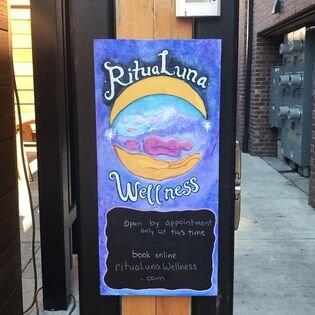 RituaLuna
Wellness
Open by appointment
only at this time
book online
ritualunawellness
.com